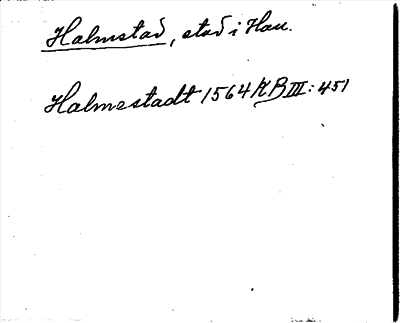 Halmstad, stad i Hall.
Halmestadt 1564 KB III: 451